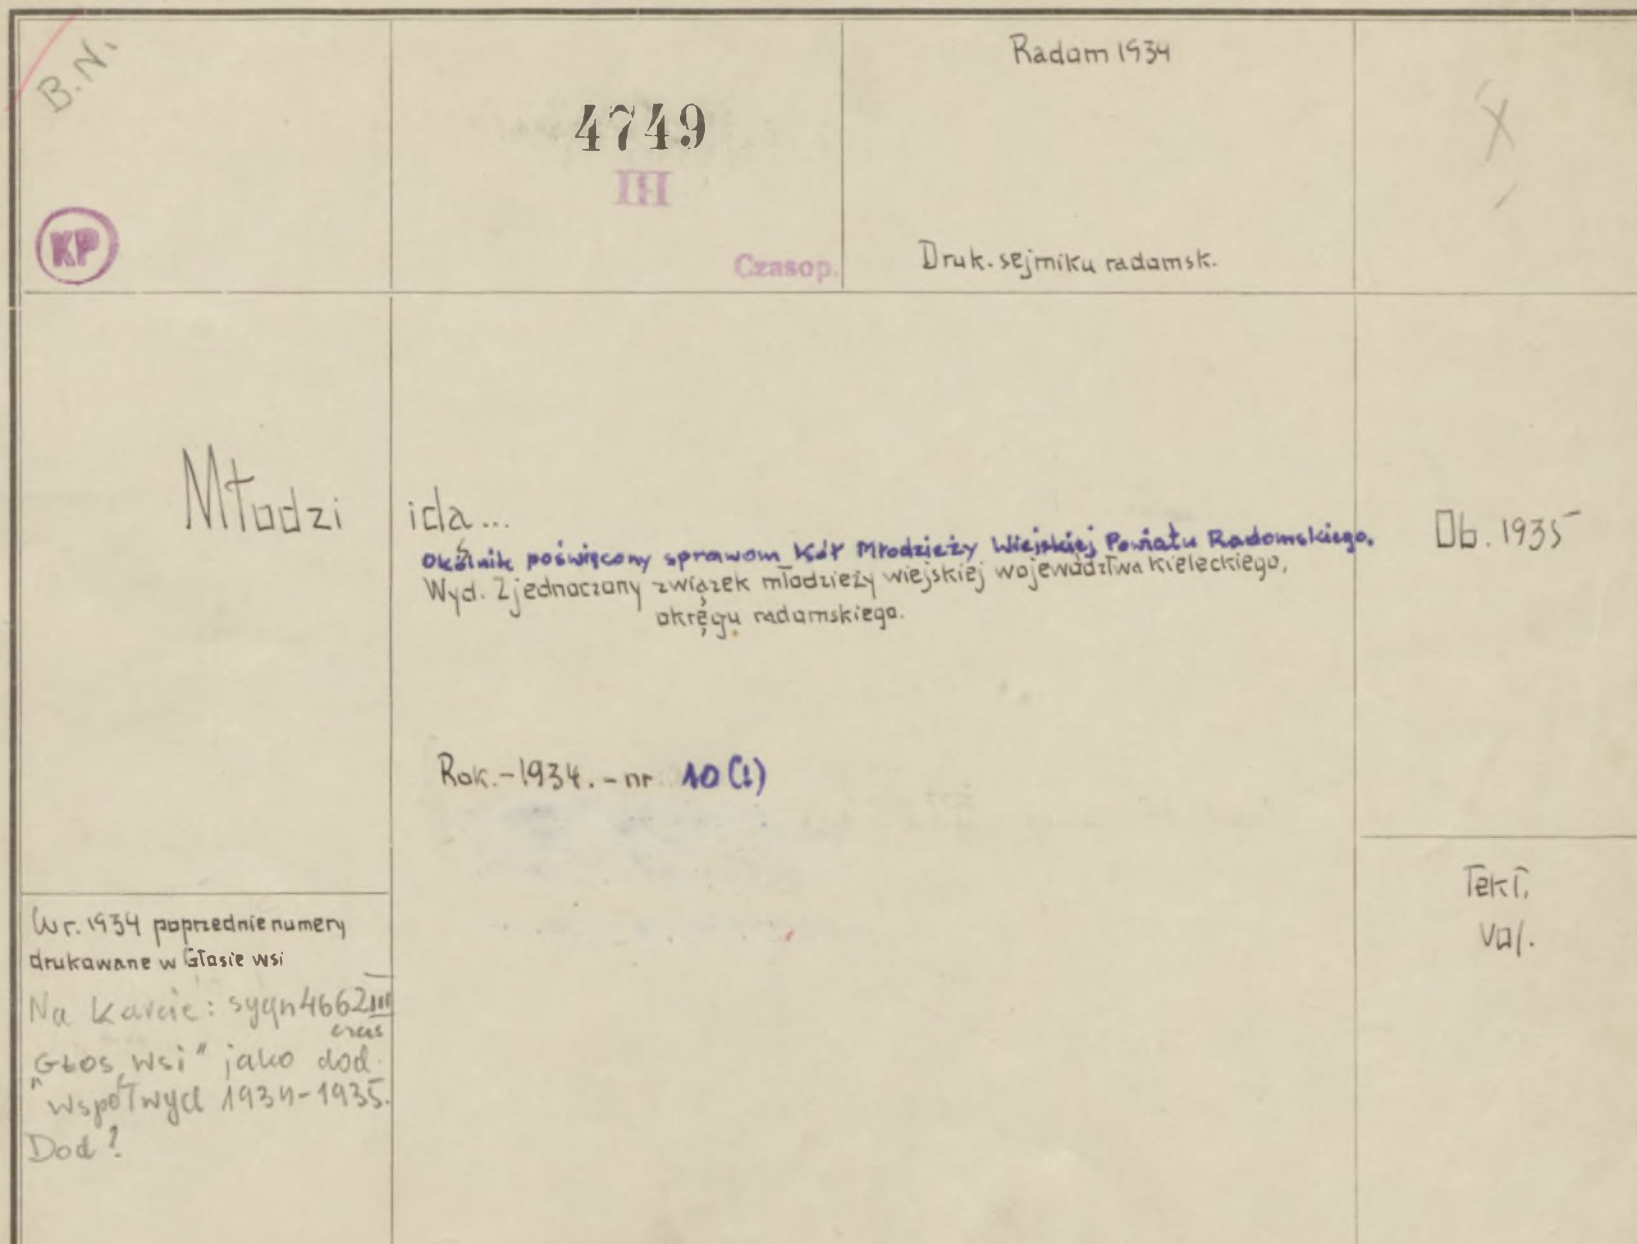 B.N.
KP
4749
III
Czasop.
Radom 1934
Druk. sejmiku radomsk.
X
Młodzi idą...
Okólnik poświęcony sprawom Kół Młodzieży Wiejskiej Powiatu Radomskiego.
Wyd. Zjednoczony związek młodzieży wiejskiej województwa kieleckiego,
okręgu radomskiego.
Ob. 1935
Rok.-1934. - nr 10 (!)
W r. 1934 poprzednie numery
drukowane w Głosie wsi
Na karcie: sygn 4662 III
czas
"Głos wsi" jako dod.
współwyd 1934-1935.
Dod?
Tekt.
Vol.